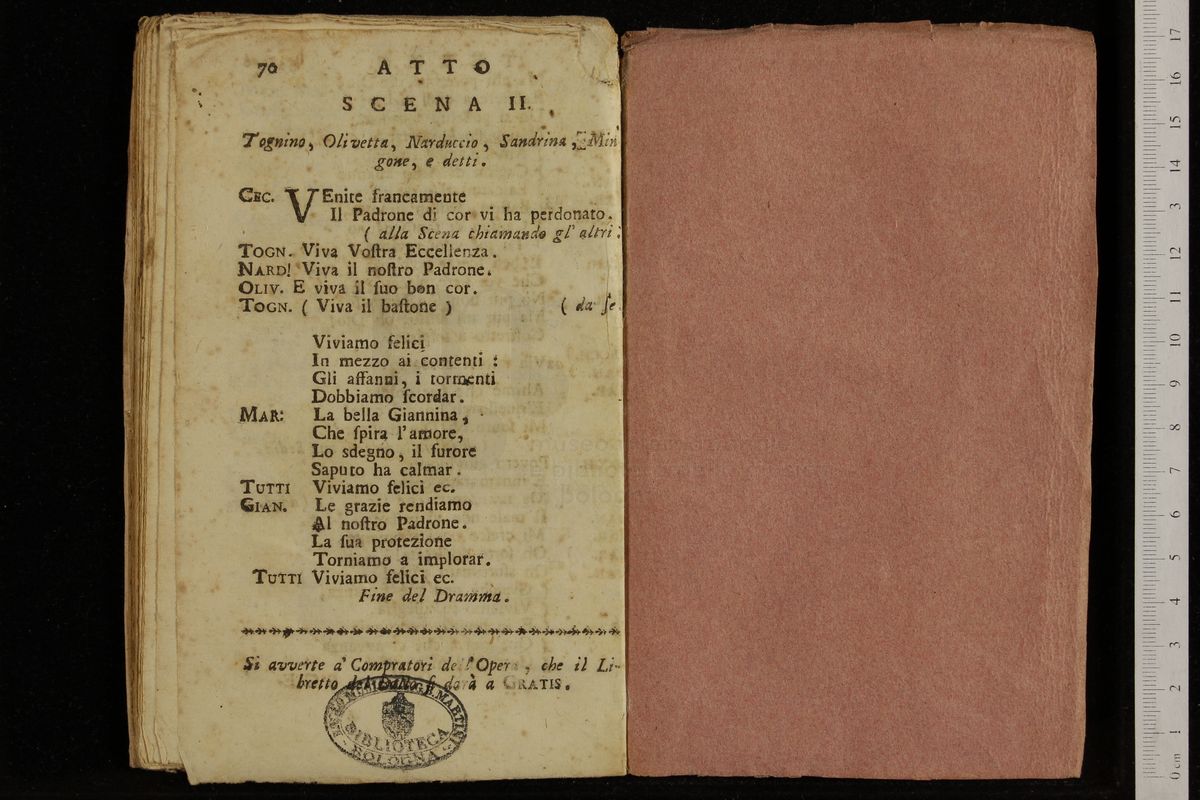 70 ATTO
SCENA II.
Tognino, Olivetta, Narduccio, Sandrina, Min
gone, e detti.
CEC. VEnite francamente
Il Padrone di cor vi ha perdonato.
( alla Scena chiamando gl' altri:
TOGN. Viva Voſtra Eccellenza.
NARD! Viva il noſtro Padrone.
OLIV. E viva il ſuo bon cor.
TOGN. ( Viva il baſtone ) ( da ſe.
Viviamo felici
In mezzo ai contenti :
Gli affanni, i tormenti
Dobbiamo ſcordar.
MAR: La bella Giannina,
Che ſpira l'amore,
Lo sdegno, il furore
Saputo ha calmar.
TUTTI Viviamo felici ec.
GIAN. Le grazie rendiamo
Al noſtro Padrone.
La ſua protezione
Torniamo a implorar.
TUTTI Viviamo felici ec.
Fine del Dramma.
Si avverte a' Compratori dell'Opera, che il Li-
bretto del Ballo ſi darà a GRATIS.
LICEO MUSICALE G.B. MARTINI
BIBLIOTECA
BOLOGNA
museo
0 cm 1 2 3 4 5 6 7 8 9 10 11 12 13 14 15 16 17